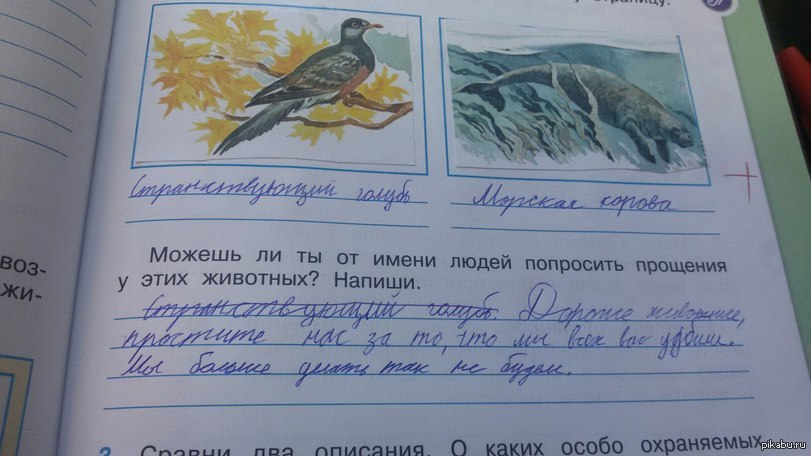 страницу.
Странствующий голубь
Морская корова
воз-
жи-
Можешь ли ты от имени людей попросить прощения
у этих животных? Напиши.
Странствующий голубь. Дорогие животные,
простите нас за то, что мы всех вас убили.
Мы больше делать так не будем.
3 Сравни два описания. О каких особо охраняемых
pikabu.ru